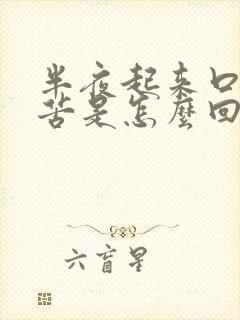 半夜起来口
苦是怎麼回
六盲星